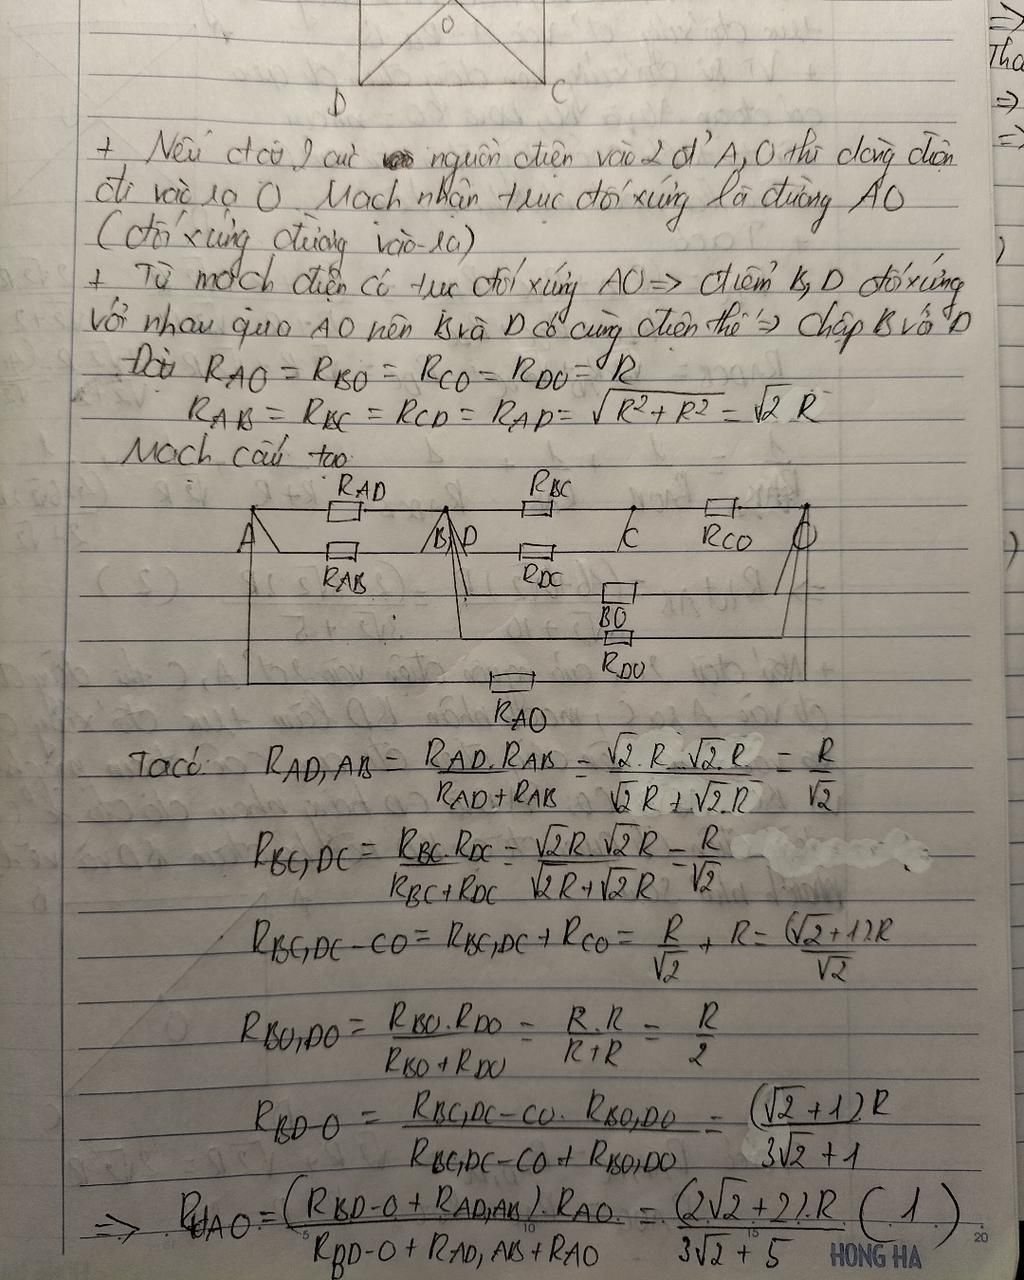 O
D
C
+ Nếu đặt 2 cực nguồn điện vào 2 đ' A, O thì dòng điện
đi vào ra O. Mạch nhận trục đối xứng là đường AO
(đối xứng đường vào-ra)
+ Từ mạch điện có trục đối xứng AO => điểm B, D đối xứng
với nhau qua AO nên B và D có cùng điện thế => chập B với D
Đặt R_AO = R_BO = R_CO = R_DO = R
R_AB = R_BC = R_CD = R_AD = √(R² + R²) = √2 R
Mạch cấu tạo
R_AD R_BC
A B, D C R_CO O
R_AB R_DC
BO
R_DO
R_AO
Ta có: R_AD,AB = (R_AD . R_AB)/(R_AD + R_AB) = (√2.R . √2.R)/(√2 R + √2.R) = R/√2
R_BC,DC = (R_BC . R_DC)/(R_BC + R_DC) = (√2R . √2R)/(√2R + √2R) = R/√2
R_BC,DC-CO = R_BC,DC + R_CO = R/√2 + R = (√2+1)R/√2
R_BO,DO = (R_BO . R_DO)/(R_BO + R_DO) = (R . R)/(R + R) = R/2
R_BD-O = (R_BC,DC-CO . R_BO,DO)/(R_BC,DC-CO + R_BO,DO) = (√2 + 1).R/(3√2 + 1)
=> R_tđAO = ((R_BD-O + R_AD,AB) . R_AO)/(R_BD-O + R_AD,AB + R_AO) = (2√2 + 2).R/(3√2 + 5) (1)
5 10 15 20
HONG HA
=>
=>
=>
)
)